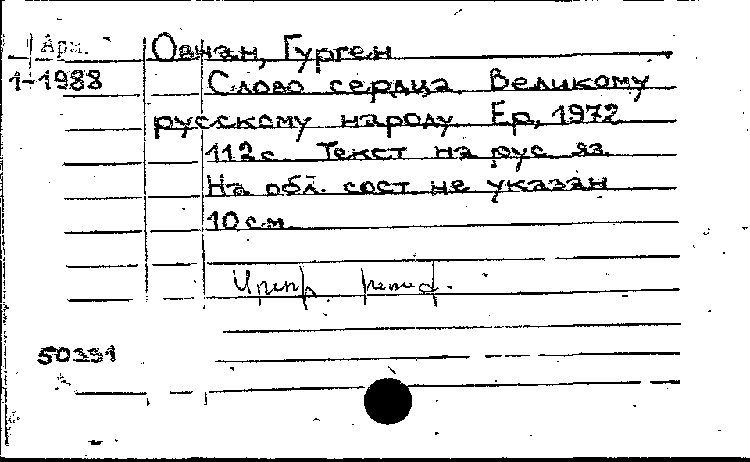 Арм. Овнан, Гурген
1-1988 Слово сердца. Великому
русскому народу. Ер., 1972
112 с. Текст на рус. яз.
На обл. сост. не указан
10 см.
50391